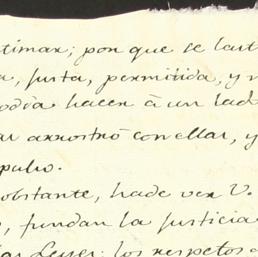 timar; por que se last
a, justa, permitida, y n
podia hacer à un lad
ar arrostró con ellar, y
pulio.
obstante, hade ver V.
o, fundan la justicia
lar Leyer: los respetos